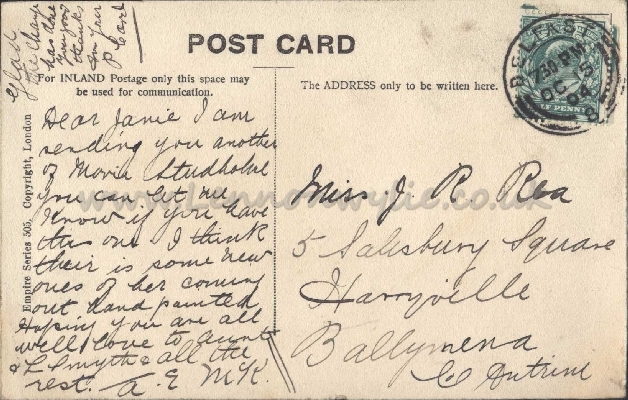 Glad
the change
has done
you good
thanks
for your
P Card
POST CARD
For INLAND Postage only this space may
be used for communication.
The ADDRESS only to be written here.
BELFAST
7.30 PM
OC 5
04
8
HALFPENNY
Empire Series 505, Copyright, London
Dear Janie I am
sending you another
of Marie Studholme
you can let me
know if you have
this one I think
their is some new
ones of her coming
out hand painted
Hoping you are all
well love to aunt
& L Smyth & all the
rest. A. E McK.
Miss J. R. Rea
5 Salisbury Square
Harryville
Ballymena
Co Antrim